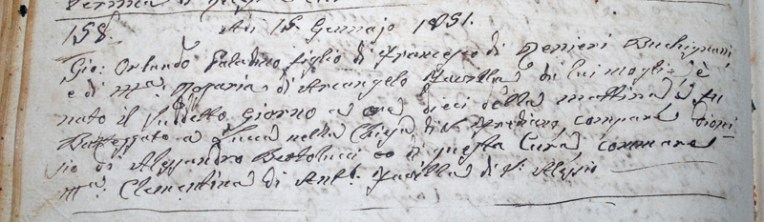 158. Adi 15 Gennajo 1851.
Gio: Orlando Paladino figlio di Francesco di Renieri Buchignani
e di Mª. Maria di Arcangelo di lui moglie, è
nato il suddetto giorno a ore dieci della mattina e fu
Battezzato a Lucca nella Chiesa di S. Frediano, compare Dioni-
sio di Alessandro Bertolucci di questa Cura, comare
Mª. Clementina di Ant:º di S. Alessio